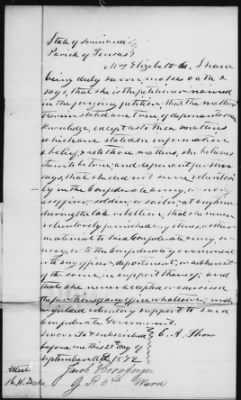 State of Louisiana
Parish of Tensas
Mrs Elizabeth A. Shaw
being duly sworn, makes oath &
says, that she is the petitioner named
in the foregoing petition, that the matters
therein stated are true of deponents own
knowledge, except as to those matters
which are stated on information
& belief, & as to those matters, she believes
them to be true, and deponent further
says, that she did not serve voluntarily
in the Confederate army, or navy
as officer, soldier, or sailor, at any time
during the late rebellion, that she never
voluntarily furnished any stores, or other
material to the Confederate army or
navy, or to the Confederate government
or to any officer, department, or adherent
of the same, in support thereof, and
that she never accepted or exercised
the functions of any office whatsoever, under
or yielded voluntary support to said
Confederate Government.
Sworn to & subscribed by E. A. Shaw
before me this day of
September 1872
Jacob
Ward
Attest
H. W.